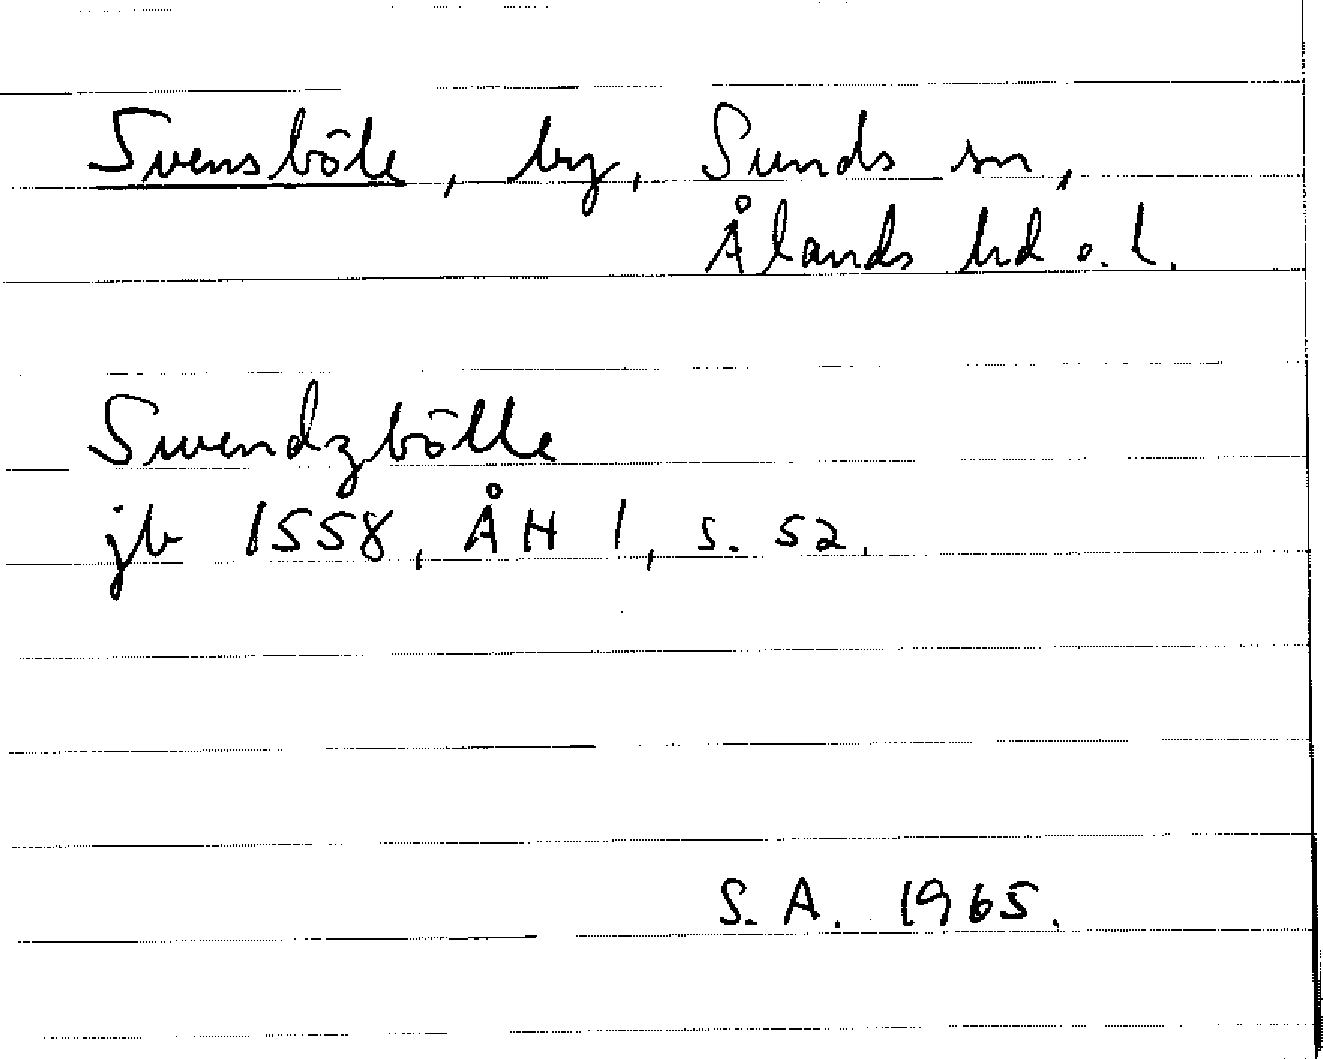 Svensböle, by, Sunds sn,
Ålands hd o. l.
Swendzbölle
jb 1558, ÅH 1, s. 52.
S. A. 1965.